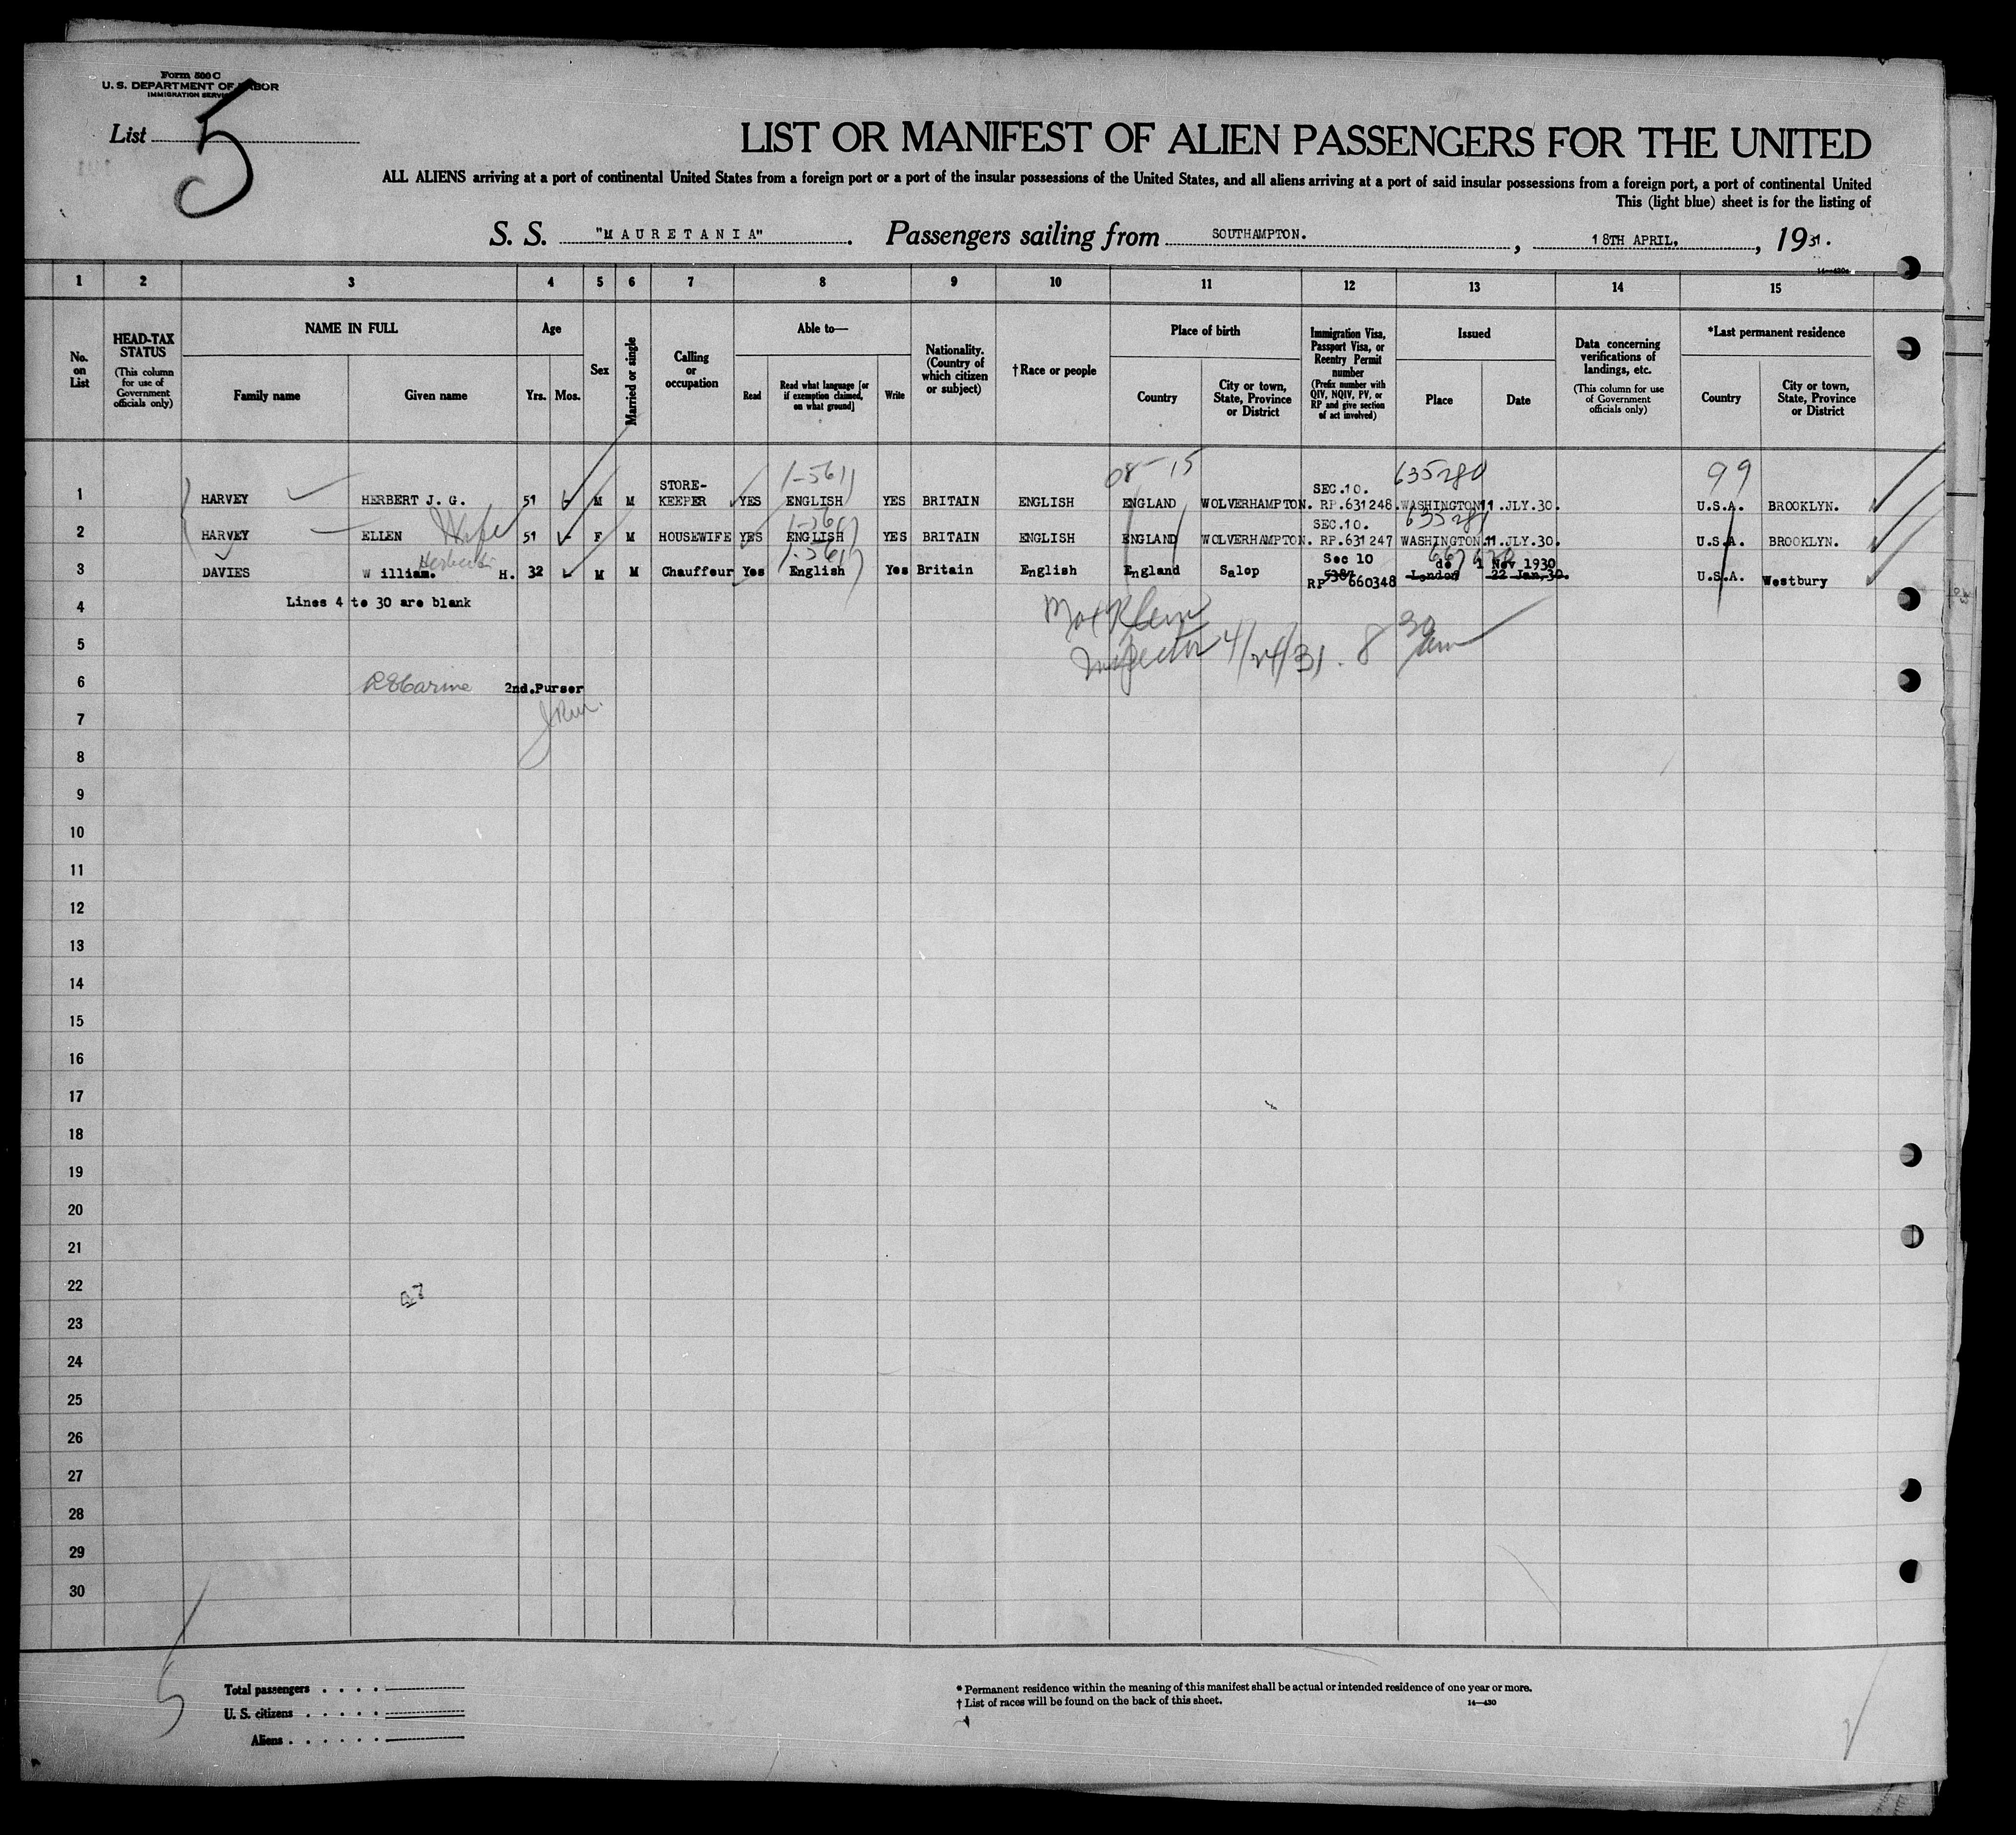 Form 500 C
U. S. DEPARTMENT OF LABOR
IMMIGRATION SERVICE
List 5
LIST OR MANIFEST OF ALIEN PASSENGERS FOR THE UNITED
ALL ALIENS arriving at a port of continental United States from a foreign port or a port of the insular possessions of the United States, and all aliens arriving at a port of said insular possessions from a foreign port, a port of continental United
This (light blue) sheet is for the listing of
S. S. "MAURETANIA". Passengers sailing from SOUTHAMPTON. , 18TH APRIL, , 1931.
1 2 3 4 5 6 7 8 9 10 11 12 13 14 15
No. on List
HEAD-TAX STATUS (This column for use of Government officials only)
NAME IN FULL
Family name Given name
Age
Yrs. Mos.
Sex
Married or single
Calling or occupation
Able to—
Read
Read what language [or if exemption claimed, on what ground]
Write
Nationality. (Country of which citizen or subject)
†Race or people
Place of birth
Country
City or town, State, Province or District
Immigration Visa, Passport Visa, or Reentry Permit number (Prefix number with QIV, NQIV, PV, or RP and give section of act involved)
Issued
Place Date
Data concerning verifications of landings, etc. (This column for use of Government officials only)
*Last permanent residence
Country
City or town, State, Province or District
08-15 635280 99
1-5611
1 HARVEY HERBERT J. G. 51 - M M STORE-KEEPER YES ENGLISH YES BRITAIN ENGLISH ENGLAND WOLVERHAMPTON. SEC.10. RP.631248. WASHINGTON 11.JLY.30. U.S.A. BROOKLYN.
2 HARVEY ELLEN Wife 51 - F M HOUSEWIFE YES ENGLISH YES BRITAIN ENGLISH ENGLAND WOLVERHAMPTON. SEC.10. RP.631247 WASHINGTON. 11.JLY.30. U.S.A. BROOKLYN.
3 DAVIES William. H. 32 - M M Chauffeur Yes English Yes Britain English England Salop Sec 10 RP 660348 do 1 Nov 1930 London 22 Jan,30. U.S.A. Westbury
4 Lines 4 to 30 are blank
Max Klein
5 Inspector 4/24/31. 8 30 am
6 2nd.Purser
7
8
9
10
11
12
13
14
15
16
17
18
19
20
21
22
23
24
25
26
27
28
29
30
Total passengers
U. S. citizens
Aliens
* Permanent residence within the meaning of this manifest shall be actual or intended residence of one year or more.
† List of races will be found on the back of this sheet. 14—430